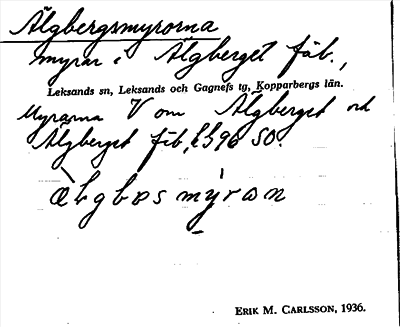 Älgbergsmyrorna
myrar i Älgberget fäb.,
Leksands sn, Leksands och Gagnefs tg, Kopparbergs län.
Myrarna V om Älgberget och
Älgberget fäb, 96 SO.
ä̀lgbəsmýrən
ERIK M. CARLSSON, 1936.